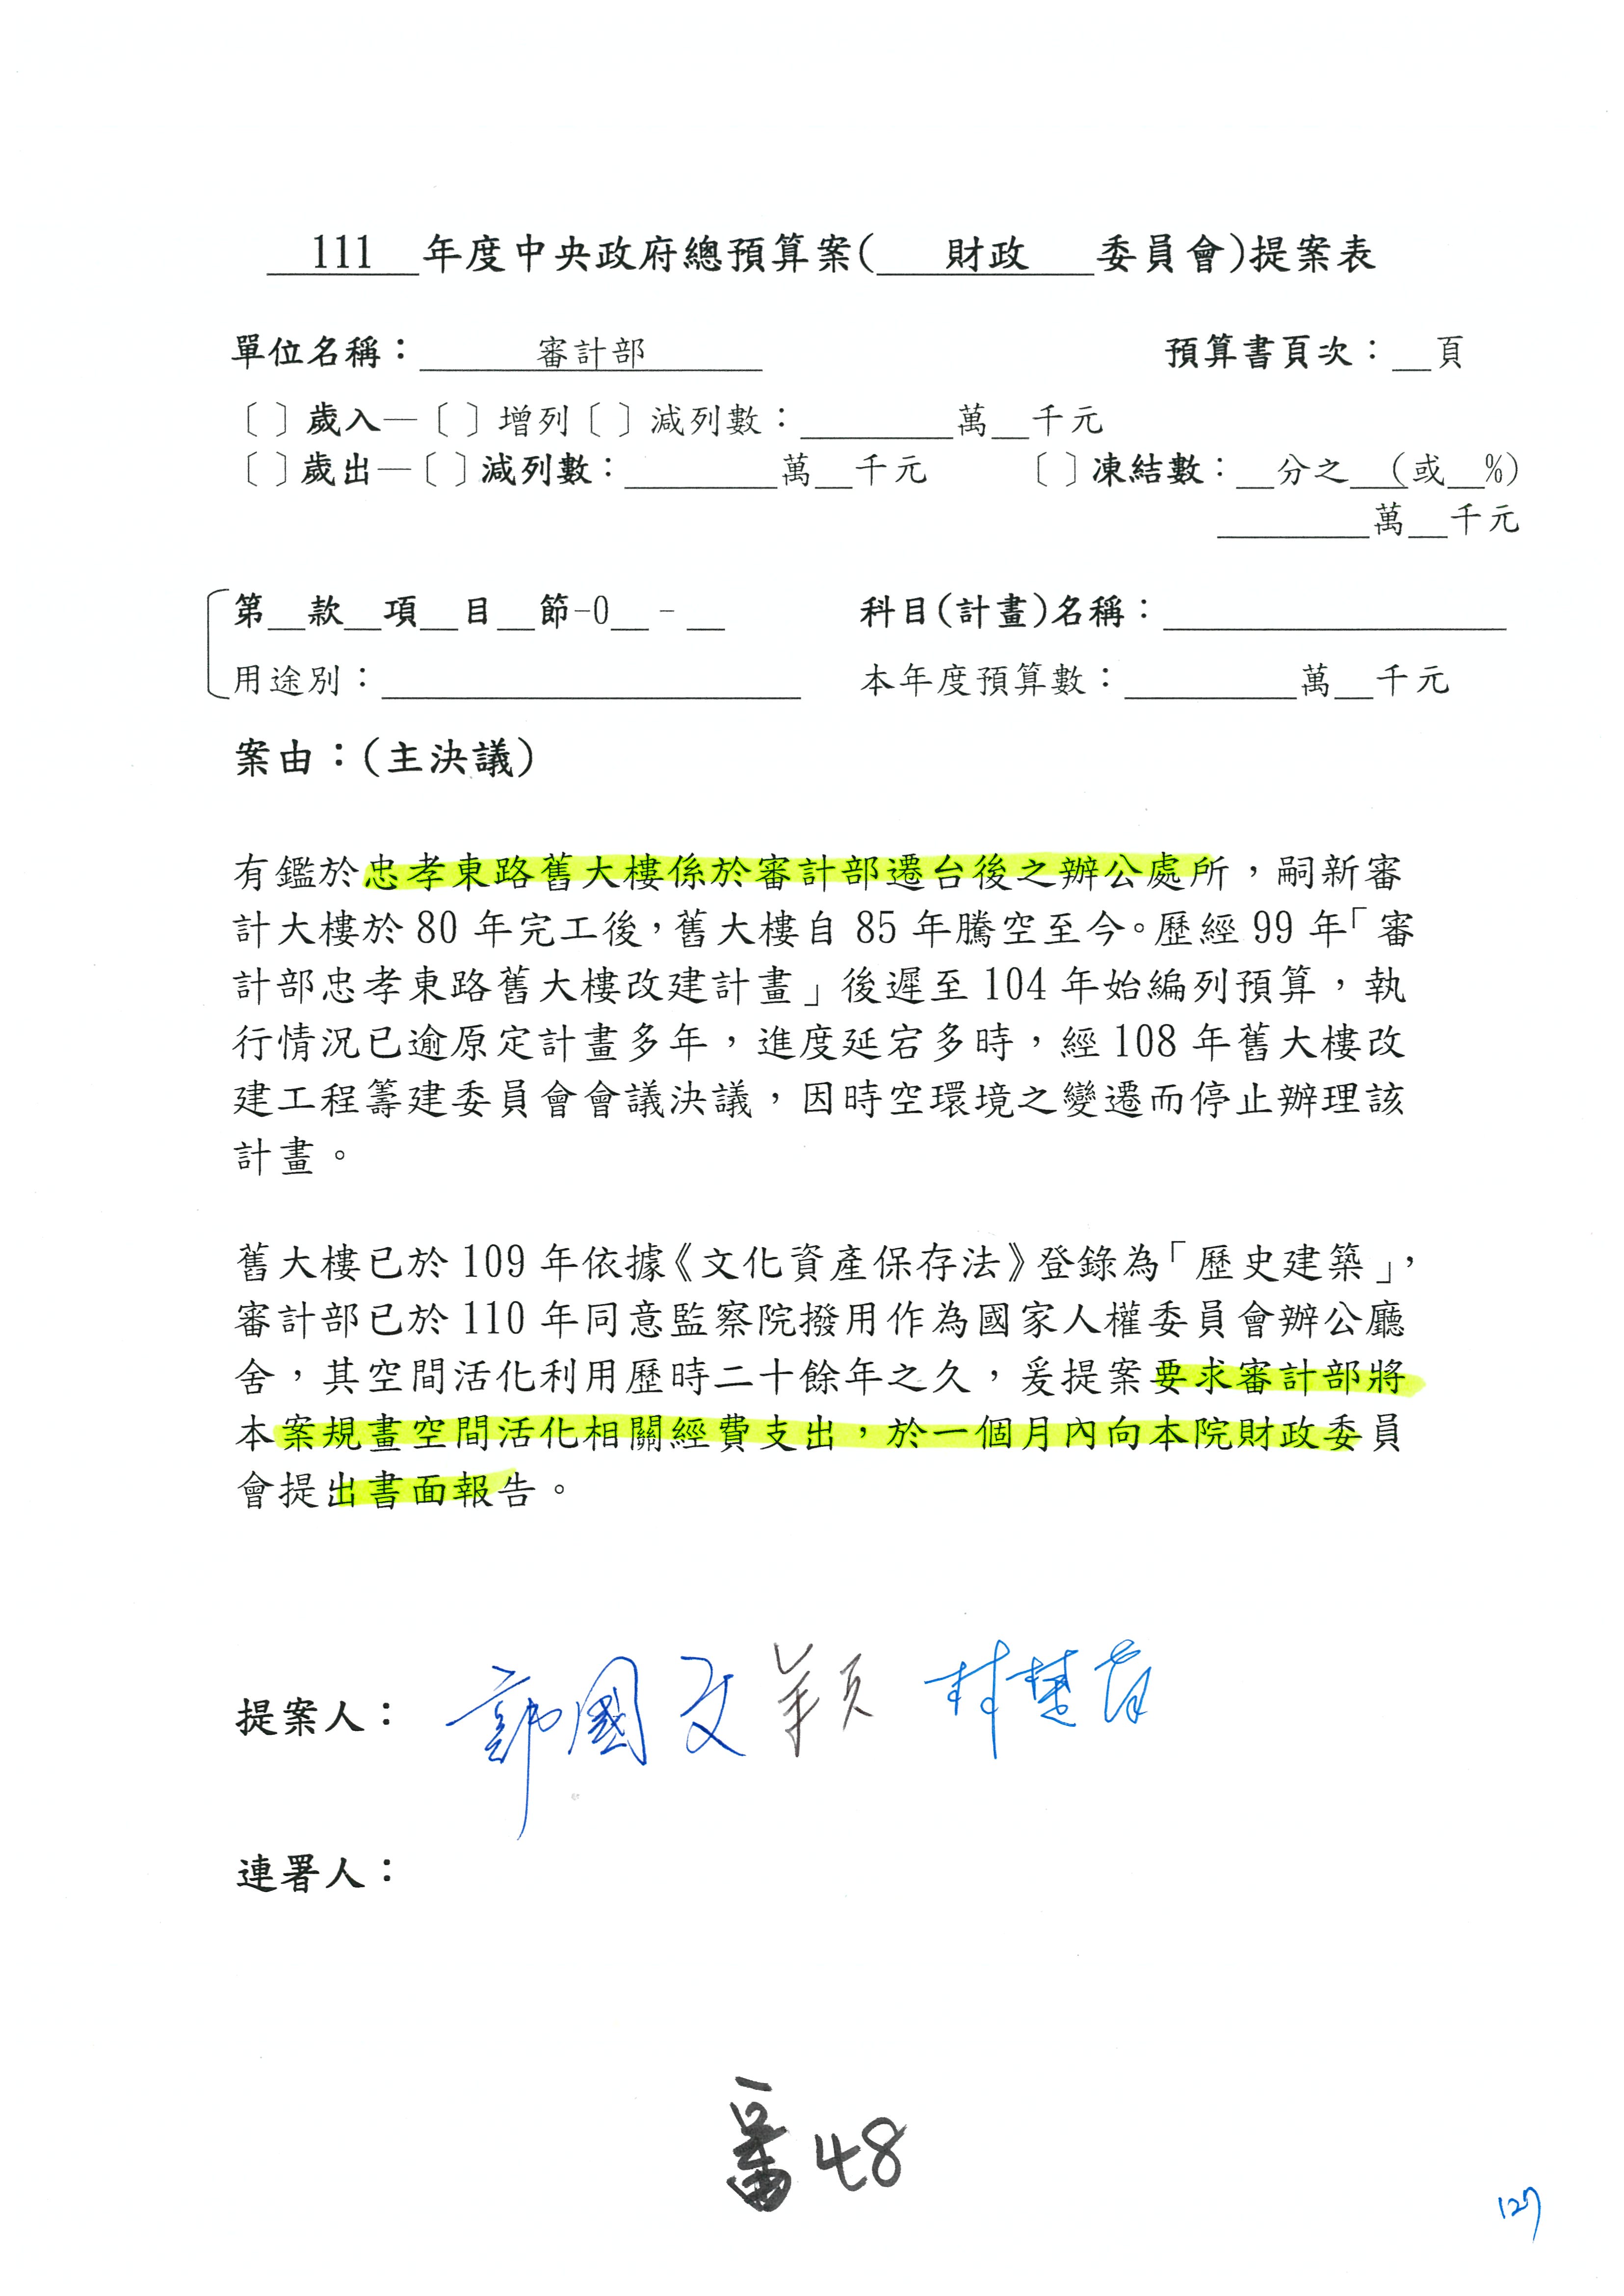 111 年度中央政府總預算案( 財政 委員會)提案表
單位名稱： 審計部 預算書頁次：__頁
〔 〕歲入—〔 〕增列〔 〕減列數：________萬__千元
〔 〕歲出—〔 〕減列數：________萬__千元 〔 〕凍結數：__分之___(或__%)
________萬__千元
第__款__項__目__節-0__-__ 科目(計畫)名稱：__________________
用途別：______________________ 本年度預算數：_________萬__千元
案由：(主決議)
有鑑於忠孝東路舊大樓係於審計部遷台後之辦公處所，嗣新審
計大樓於 80 年完工後，舊大樓自 85 年騰空至今。歷經 99 年「審
計部忠孝東路舊大樓改建計畫」後遲至 104 年始編列預算，執
行情況已逾原定計畫多年，進度延宕多時，經 108 年舊大樓改
建工程籌建委員會會議決議，因時空環境之變遷而停止辦理該
計畫。
舊大樓已於 109 年依據《文化資產保存法》登錄為「歷史建築」，
審計部已於 110 年同意監察院撥用作為國家人權委員會辦公廳
舍，其空間活化利用歷時二十餘年之久，爰提案要求審計部將
本案規畫空間活化相關經費支出，於一個月內向本院財政委員
會提出書面報告。
提案人： 郭國文 林楚茵
連署人：
審 48
127